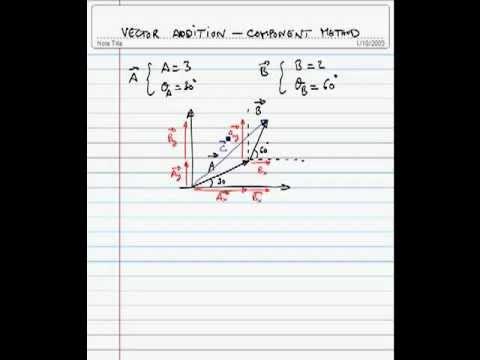 VECTOR ADDITION – COMPONENT METHOD
Note Title
1/10/2005
A⃗ { A = 3
θ_A = 30°
B⃗ { B = 2
θ_B = 60°
B⃗
B⃗y
B⃗y
C⃗
60°
A⃗
A⃗y
B⃗x
30
A⃗x
B⃗x